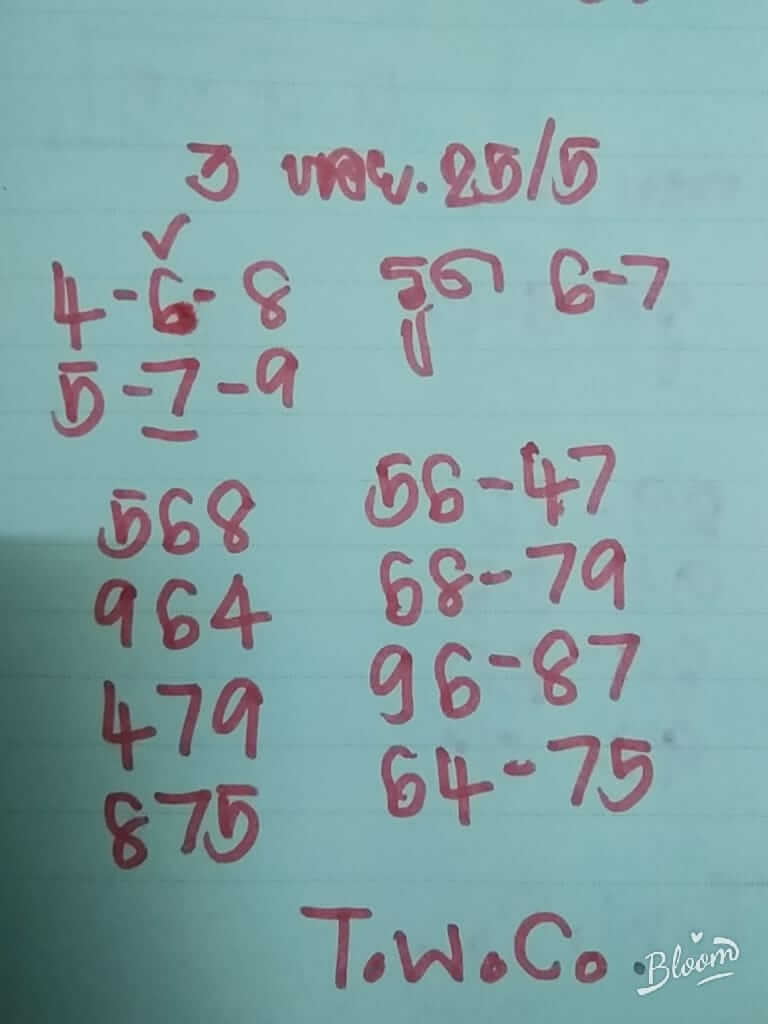 3 หอย. 25/5
✓
4-6-8 รูด 6-7
5-7-9
568 56-47
964 68-79
479 96-87
875 64-75
T.W.C.
Bloom